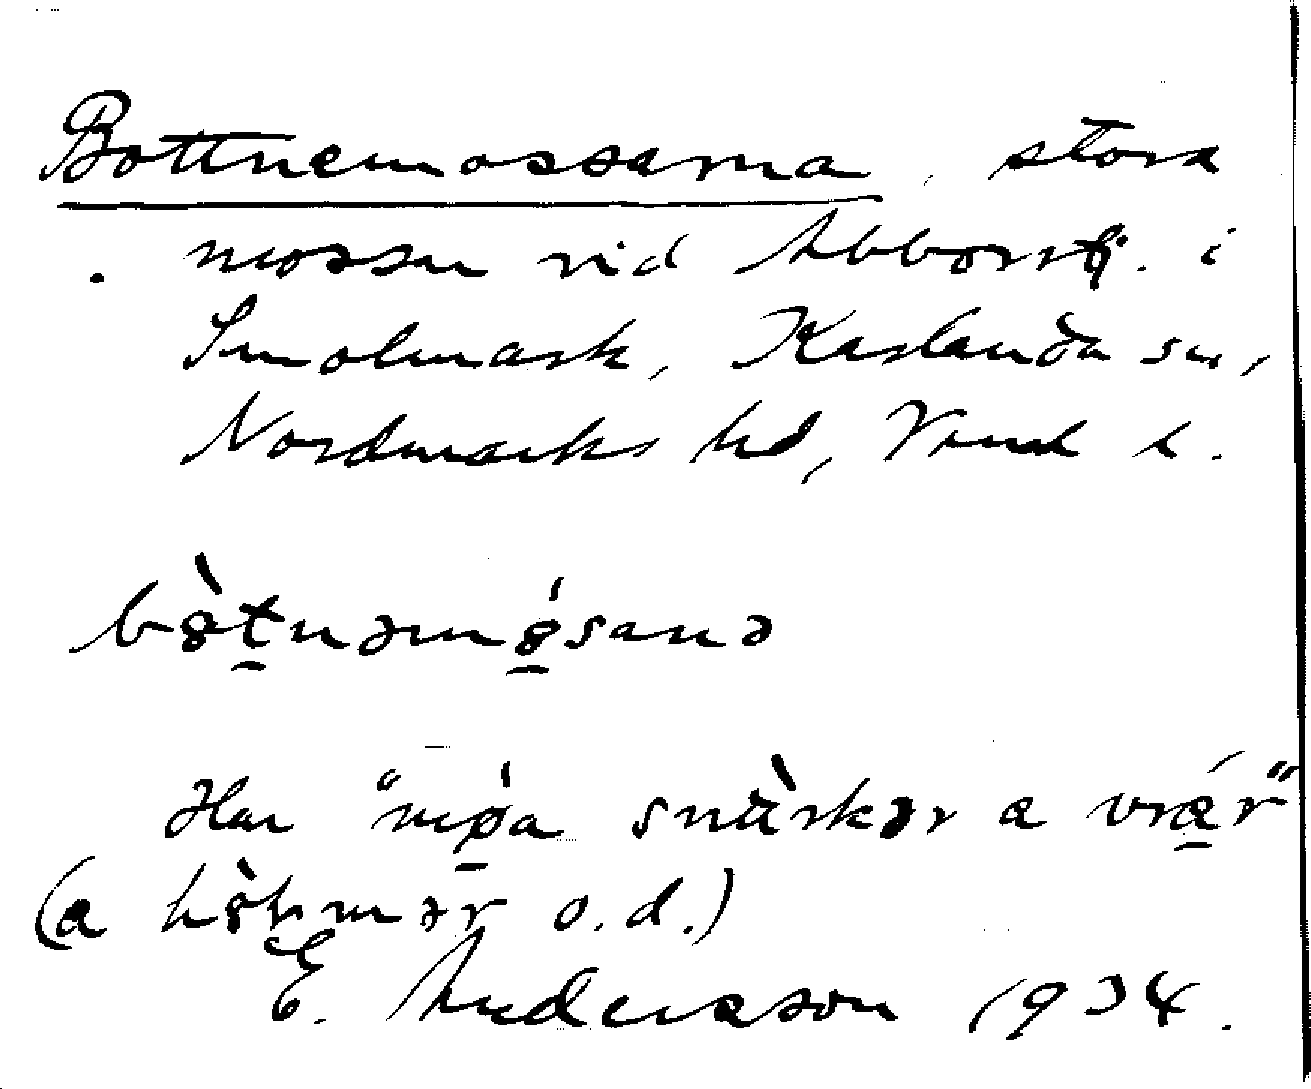 Bottnemossarna, stora
mossar vid Abborrtj. i
Smolmark, Karlanda sn,
Nordmarks hd, Vrml l.
bòtnəmósanə
Har "mȯa snàrkər a vrǽr"
(a hòlmər o.d.)
E. Andersson 1934.